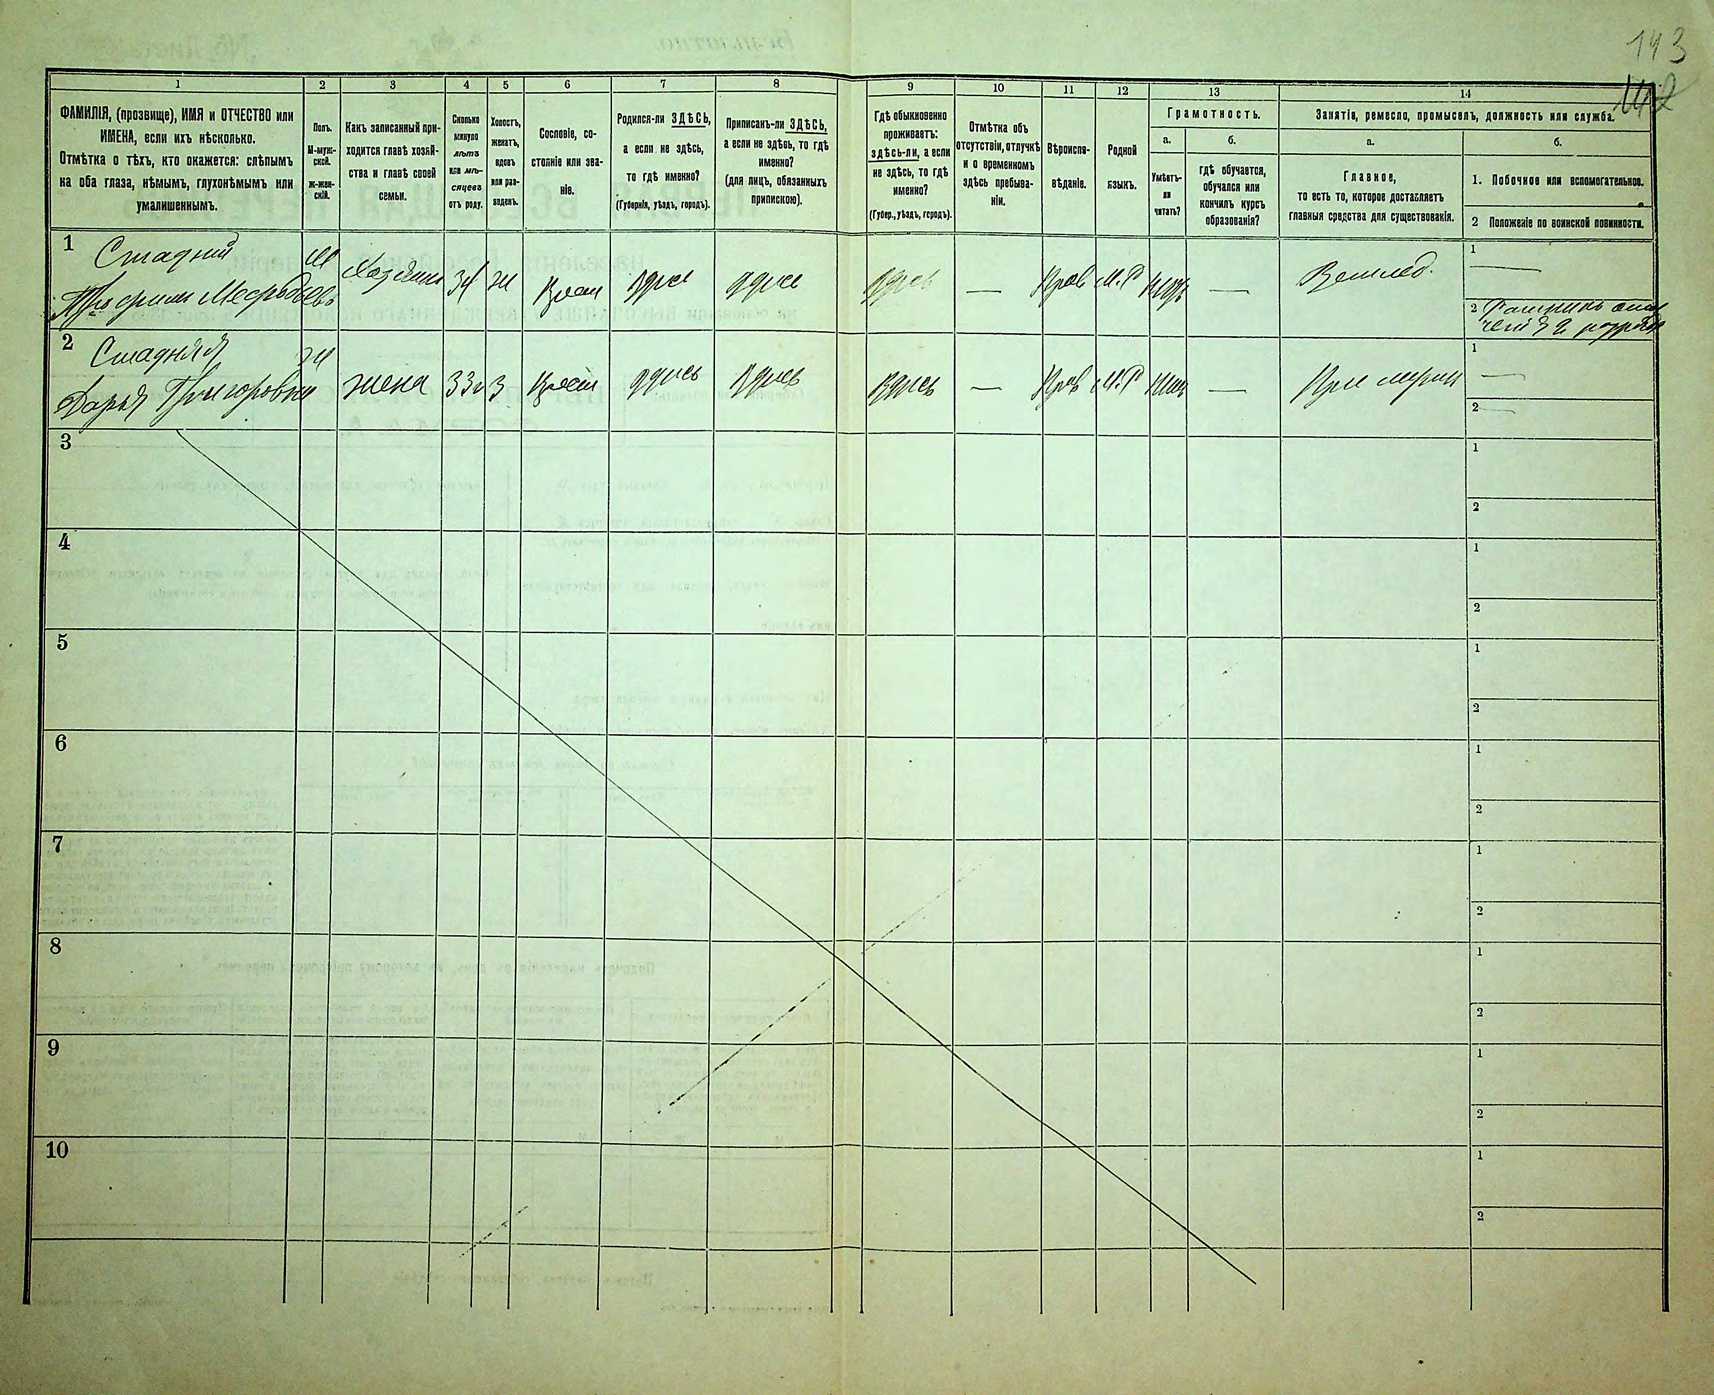 143
142
1
2
3
4
5
6
7
8
9
10
11
12
13
14
ФАМИЛІЯ, (прозвище), ИМЯ и ОТЧЕСТВО или
ИМЕНА, если ихъ нѣсколько.
Отмѣтка о тѣхъ, кто окажется: слѣпымъ
на оба глаза, нѣмымъ, глухонѣмымъ или
умалишеннымъ.
Полъ.
М-муж-
ской.
ж-жен-
скій.
Какъ записанный при-
ходится главѣ хозяй-
ства и главѣ своей
семьи.
Сколько
минуло
лѣтъ
или мѣ-
сяцевъ
отъ роду.
Холостъ,
женатъ,
вдовъ
или раз-
веденъ.
Сословіе, со-
стояніе или зва-
ніе.
Родился-ли ЗДѢСЬ,
а если не здѣсь,
то гдѣ именно?
(Губернія, уѣздъ, городъ).
Приписанъ-ли ЗДѢСЬ,
а если не здѣсь, то гдѣ
именно?
(для лицъ, обязанныхъ
припискою).
Гдѣ обыкновенно
проживаетъ:
здѣсь-ли, а если
не здѣсь, то гдѣ
именно?
(Губер., уѣздъ, городъ).
Отмѣтка объ
отсутствіи, отлучкѣ
и о временномъ
здѣсь пребыва-
ніи.
Вѣроиспо-
вѣданіе.
Родной
языкъ.
Грамотность.
а.
Умѣетъ-
ли
читать?
б.
гдѣ обучается,
обучался или
кончилъ курсъ
образованія?
Занятіе, ремесло, промыселъ, должность или служба.
а.
Главное,
то есть то, которое доставляетъ
главныя средства для существованія.
б.
1. Побочное или вспомогательное.
2 Положеніе по воинской повинности.
1
Стадній
М
Хозяинъ
34
Ж
Крест
здѣсь
здѣсь
здѣсь
—
Прав
М.Р
—
Землед.
1 —
2
2
Стадняя
Дарья Григоровна
Ж
жена
33
З
Крест
здѣсь
здѣсь
здѣсь
—
Прав
М.Р
—
При мужи
1 —
2 —
3
1
2
4
1
2
5
1
2
6
1
2
7
1
2
8
1
2
9
1
2
10
1
2